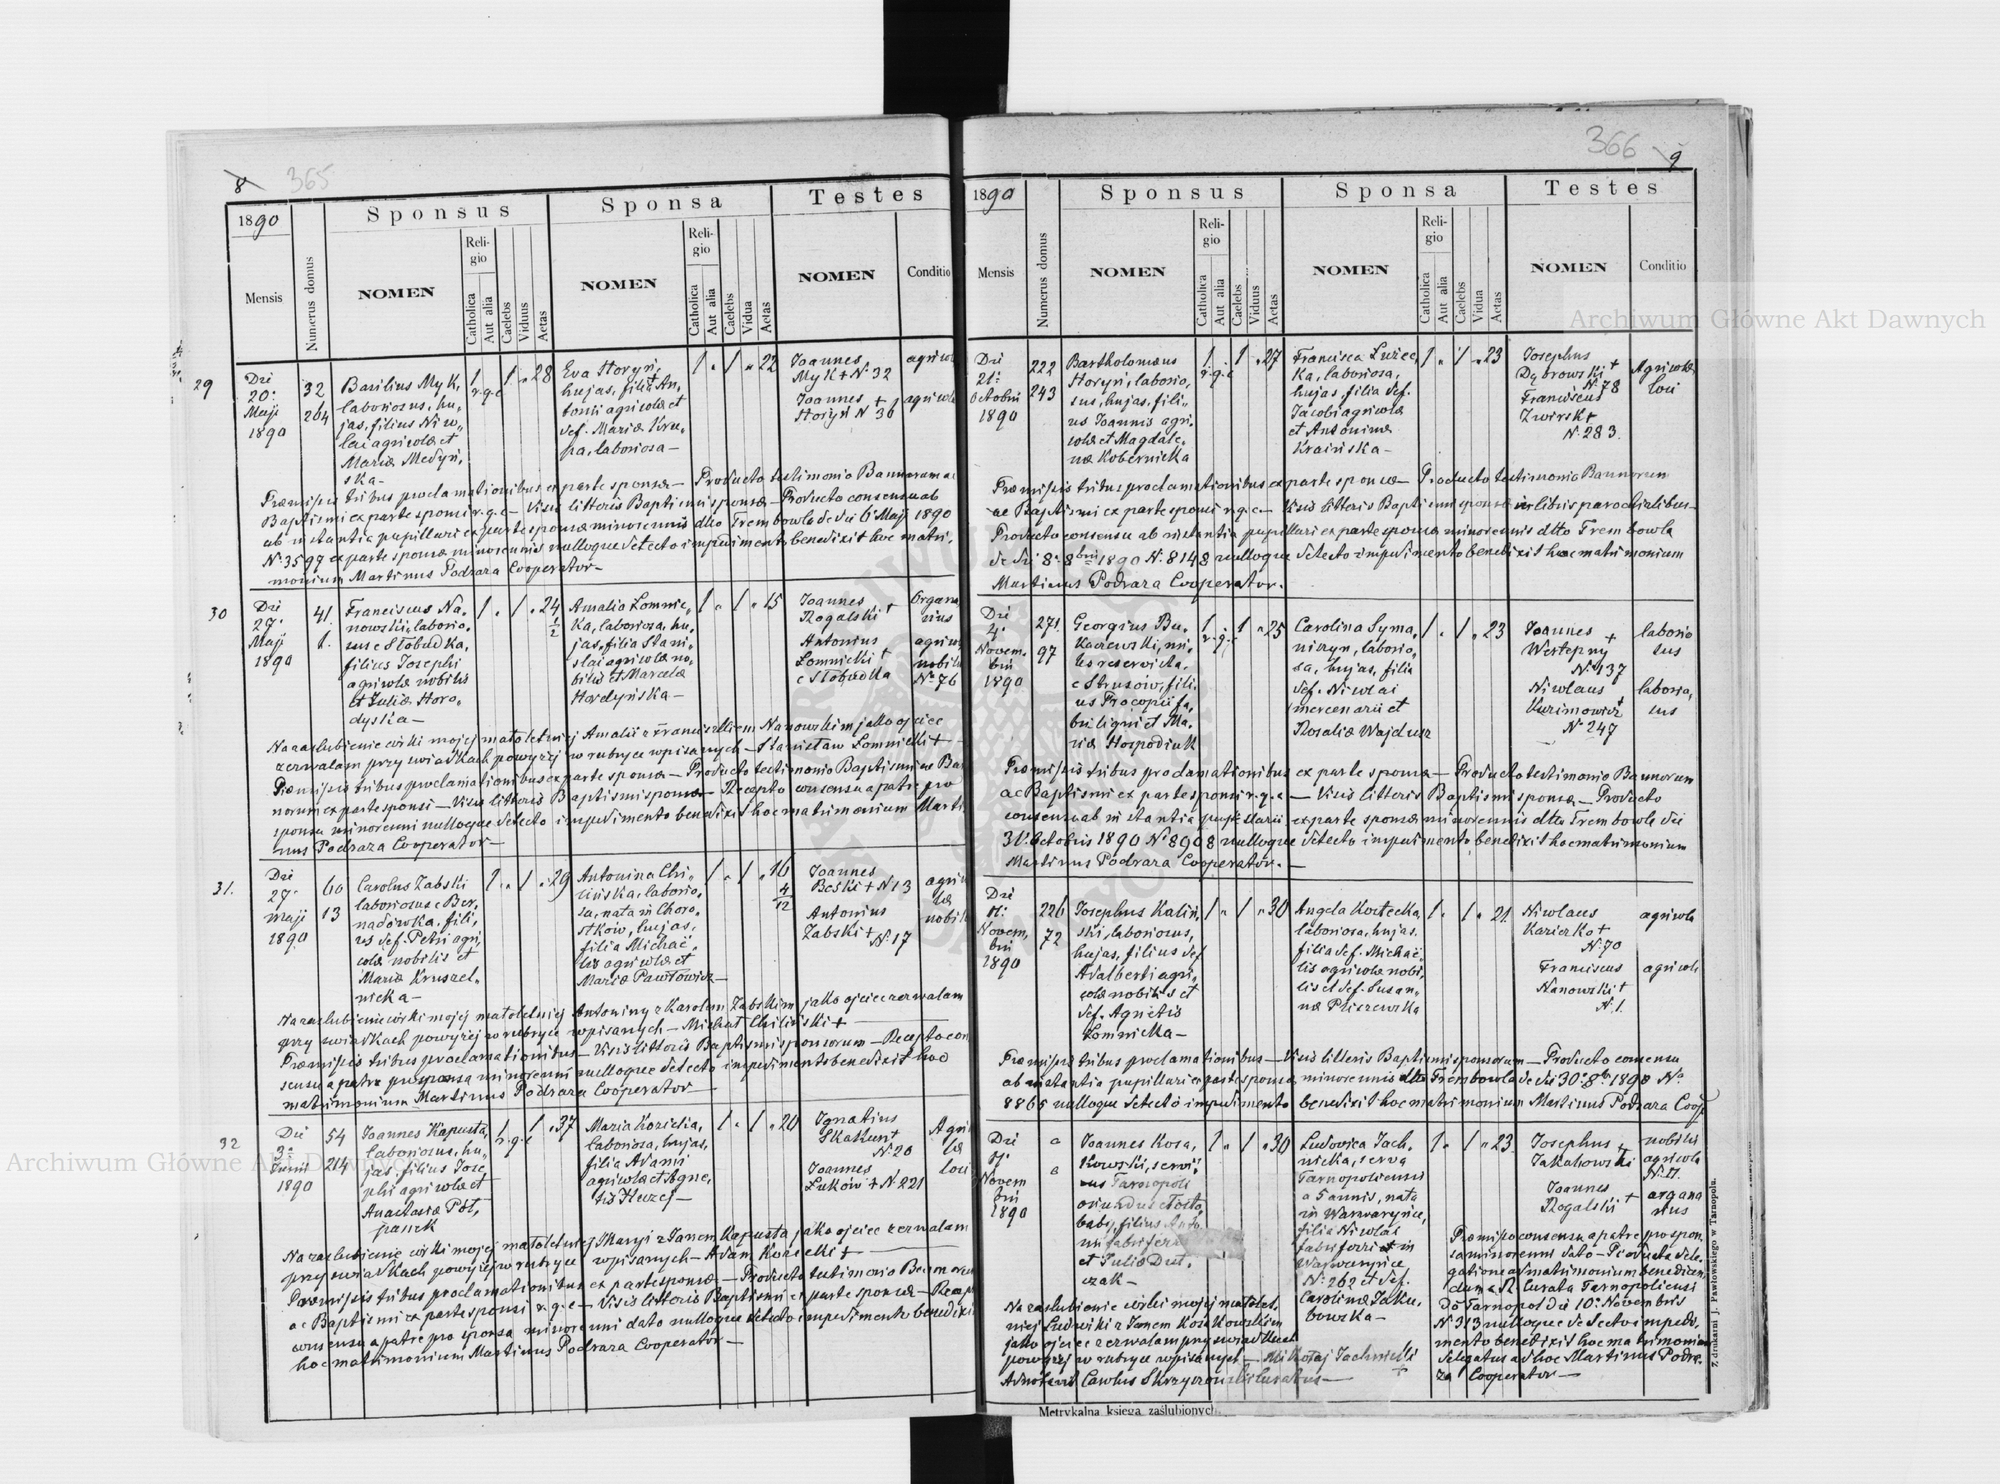 8
365
1890
Sponsus
Sponsa
Testes
Mensis
Numerus domus
NOMEN
Religio
Catholica
Aut alia
Caelebs
Viduus
Aetas
NOMEN
Religio
Catholica
Aut alia
Caelebs
Vidua
Aetas
NOMEN
Conditio
29
Die
20ª
Maji
1890
32
264
Basilius Myk,
laboriosus, hu-
jas, filius Nico-
lai agricolæ et
Mariæ Medyń-
ska-
1
r.g.c
1
28
Eva Horyń,
hujas, filia An-
tonii agricolæ et
def. Mariæ Kru-
pa, laboriosa-
1 1 22
Joannes
Myk + N. 32
Joannes +
Horyń N 36
agricol
agricol
Præmissis tribus proclamationibus ex parte sponsæ- Producto testimonio Bannorum ac
Baptismi ex parte sponsi r.g.c- Visis litteris Baptismi sponsæ- Producto consensu ab
ab instantia pupillari ex parte sponsæ minorennis dtto Trembowla de die 6 Maji 1890
N. 3597 ex parte sponsæ minorennis nulloque detecto impedimento benedixit hoc matri-
monium Martinus Podraza Cooperator-
30
Die
27ª
Maji
1890
41.
1.
Franciscus Na-
nowski, laborio-
sus e Słobudka,
filius Josephi
agricolæ nobilis
et Juliæ Horo-
dyska-
1 1 24
1/2
Amalia Łomnic-
ka, laboriosa, hu-
jas, filia Stani-
slai agricolæ no-
bilis et Marcelæ
Hordyńska-
1 1 15
Joannes
Rogalski +
Antonius
Łomnicki +
e Słobudka
Organa
rius
agricol
nobilis
N. 76
Na zaślubienie córki mojej małoletniej Amalii z Franciszkiem Nanowskim jako ojciec
zezwalam przy świadkach powyżej w rubryce wpisanych- Stanisław Łomnicki +
Præmissis tribus proclamationibus ex parte sponsæ- Producto testimonio Baptismi ac Ban
norum ex parte sponsi- Visis litteris Baptismi sponsæ- Recepto consensu a patre pro
sponsa minorenni nulloque detecto impedimento benedixit hoc matrimonium Marti
nus Podraza Cooperator-
31.
Die
27ª
Maji
1890
60
13
Carolus Zabski
laboriosus e Ber-
nadówka, fili-
us def. Petri agri-
colæ nobilis et
Mariæ Kruszel-
nicka-
1 1 29
Antonina Chi-
lińska, laborio-
sa, nata in Choro-
stków, hujas,
filia Michaë-
lis agricolæ et
Mariæ Pawłowicz-
1 1 16
4/12
Joannes
Beski + N 13
Antonius
Zabski +
N. 17
agrico
læ
nobil
Na zaślubienie córki mojej małoletniej Antoniny z Karolem Zabskim jako ojciec zezwalam
przy świadkach powyżej w rubryce wpisanych- Michał Chiliński +
Præmissis tribus proclamationibus- Visis litteris Baptismi sponsorum- Recepto con
sensu a patre pro sponsa minorenni nulloque detecto impedimento benedixit hoc
matrimonium Martinus Podraza Cooperator-
32
Die
3ª
Junii
1890
54
214
Joannes Kapusta,
laboriosus, hu-
jas, filius Jose-
phi agricolæ et
Anastasiæ Pół-
panek
1
r.g.c
1 37
Maria Kozicka,
laboriosa, hujas,
filia Adami
agricolæ et Agne-
tis Huzej-
1 1 20
Ignatius
Skakun +
N. 20
Joannes
Łuków + N. 221
Agri
læ
loci
Na zaślubienie córki mojej małoletniej Maryi z Janem Kapusta jako ojciec zezwalam
przy świadkach powyżej w rubryce wpisanych- Adam Kozicki +
Præmissis tribus proclamationibus ex parte sponsæ- Producto testimonio Bannorum
ac Baptismi ex parte sponsi r.g.c- Visis litteris Baptismi ex parte sponsæ- Recep
consensu a patre pro sponsa minorenni dato nulloque detecto impedimento benedixit
hoc matrimonium Martinus Podraza Cooperator-
366
9
1890
Sponsus
Sponsa
Testes
Mensis
Numerus domus
NOMEN
Religio
Catholica
Aut alia
Caelebs
Viduus
Aetas
NOMEN
Religio
Catholica
Aut alia
Caelebs
Vidua
Aetas
NOMEN
Conditio
Die
21ª
Octobris
1890
222
243
Bartholomæus
Horyń, laborio-
sus, hujas, fili-
us Joannis agri-
colæ et Magdale-
næ Kobernicka
1
r.g.c
1 27
Francisca Łużec-
ka, laboriosa,
hujas, filia def.
Jacobi agricolæ
et Antoninæ
Kraińska-
1 1 23
Josephus
Dąbrowski +
N. 78
Franciscus
Zwirsk +
N. 283.
Agricolæ
loci
Præmissis tribus proclamationibus ex parte sponsæ- Producto testimonio Bannorum
ac Baptismi ex parte sponsi r.g.c- Visis litteris Baptismi sponsæ in libris parochialibus-
Producto consensu ab instantia pupillari ex parte sponsæ minorennis dtto Trembowla
de die 8ª 8bris 1890 N. 8148 nulloque detecto impedimento benedixit hoc matrimonium
Martinus Podraza Cooperator.
Die
4ª
Novem-
bris
1890
271.
97
Georgius Bu-
kaczewski, mi-
les reservista
e Strusów, fili-
us Procopii fa-
bri ligni et Ma-
riæ Hospodiuk
1
r.g.c
1 25
Carolina Syma-
niczyn, laborio-
sa, hujas, filia
def. Nicolai
mercenarii et
Rosaliæ Wajdusz
1 1 23
Joannes +
Wertepny
N. 137
Nicolaus
Kuzimowicz +
N 247
laborio
sus
laborio,
sus
Præmissis tribus proclamationibus ex parte sponsæ- Producto testimonio Bannorum
ac Baptismi ex parte sponsi r.g.c- Visis litteris Baptismi sponsæ- Producto
consensu ab instantia pupillari ex parte sponsæ minorennis dtto Trembowla die
31. Octobris 1890 N. 8908 nulloque detecto impedimento benedixit hoc matrimonium
Martinus Podraza Cooperator.-
Die
Novem,
bris
1890
226
72
Josephus Kaliń-
ski, laboriosus,
hujas, filius def
Adalberti agri-
colæ nobilis et
def. Agnetis
Łomnicka-
1 1 30
Angela Kostecka,
laboriosa, hujas,
filia def. Michaë-
lis agricolæ nobi-
lis et def. Susan-
næ Pliszewska
1 1 21.
Nicolaus
Kazierko +
N. 70
Franciscus
Nanowski +
N. 1.
agricola
agricola
Præmissis tribus proclamationibus- Visis litteris Baptismi sponsorum- Producto consensu
ab instantia pupillari ex parte sponsæ minorennis dtto Trembowla de die 30ª 8bris 1890 Nº
8865 nulloque detecto impedimento benedixit hoc matrimonium Martinus Podraza Coop
Die
Novem
bris
1890
a
a
Joannes Kosa-
kowski, servi-
us Tarnopoli
oriundus e Tołto-
baby, filius Anto-
ni fabri ferra
et Juliæ Dut-
czak-
1 1 30
Ludovica Jach-
nicka, serva
Tarnopoliensis
a 5 annis, nata
in Warwaryńce,
filia Nicolai
fabri ferri in
Warwaryńce
N. 262 et def.
Carolinæ Jaku-
bowska-
1 1 23.
Josephus +
Jakubowski
Joannes +
Rogalski
nobilis
agricola
N. 17.
organa
rius
Præmisso consensu a patre pro spon-
sa minorenni dato- Producta dele-
gatione ad matrimonium benedicen-
dum a R. Curato Tarnopoliensi
Dto Tarnopol die 10ª Novembris
N 313 nulloque detecto impedi-
mento benedixit hoc matrimonium
delegatus ad hoc Martinus Podra-
za Cooperator-
Na zaślubienie córki mojej małolet-
niej Ludwiki z Janem Kosakowskim
jako ojciec zezwalam przy świadkach
powyżej w rubryce wpisanych- Mikołaj Jachnicki +
Carolus Skrzyczowski Curatus-
Metrykalna księga zaślubionych.
Z drukarni J. Pawłowskiego w Tarnopolu.
Archiwum Główne Akt Dawnych
Archiwum Główne Akt Dawnych